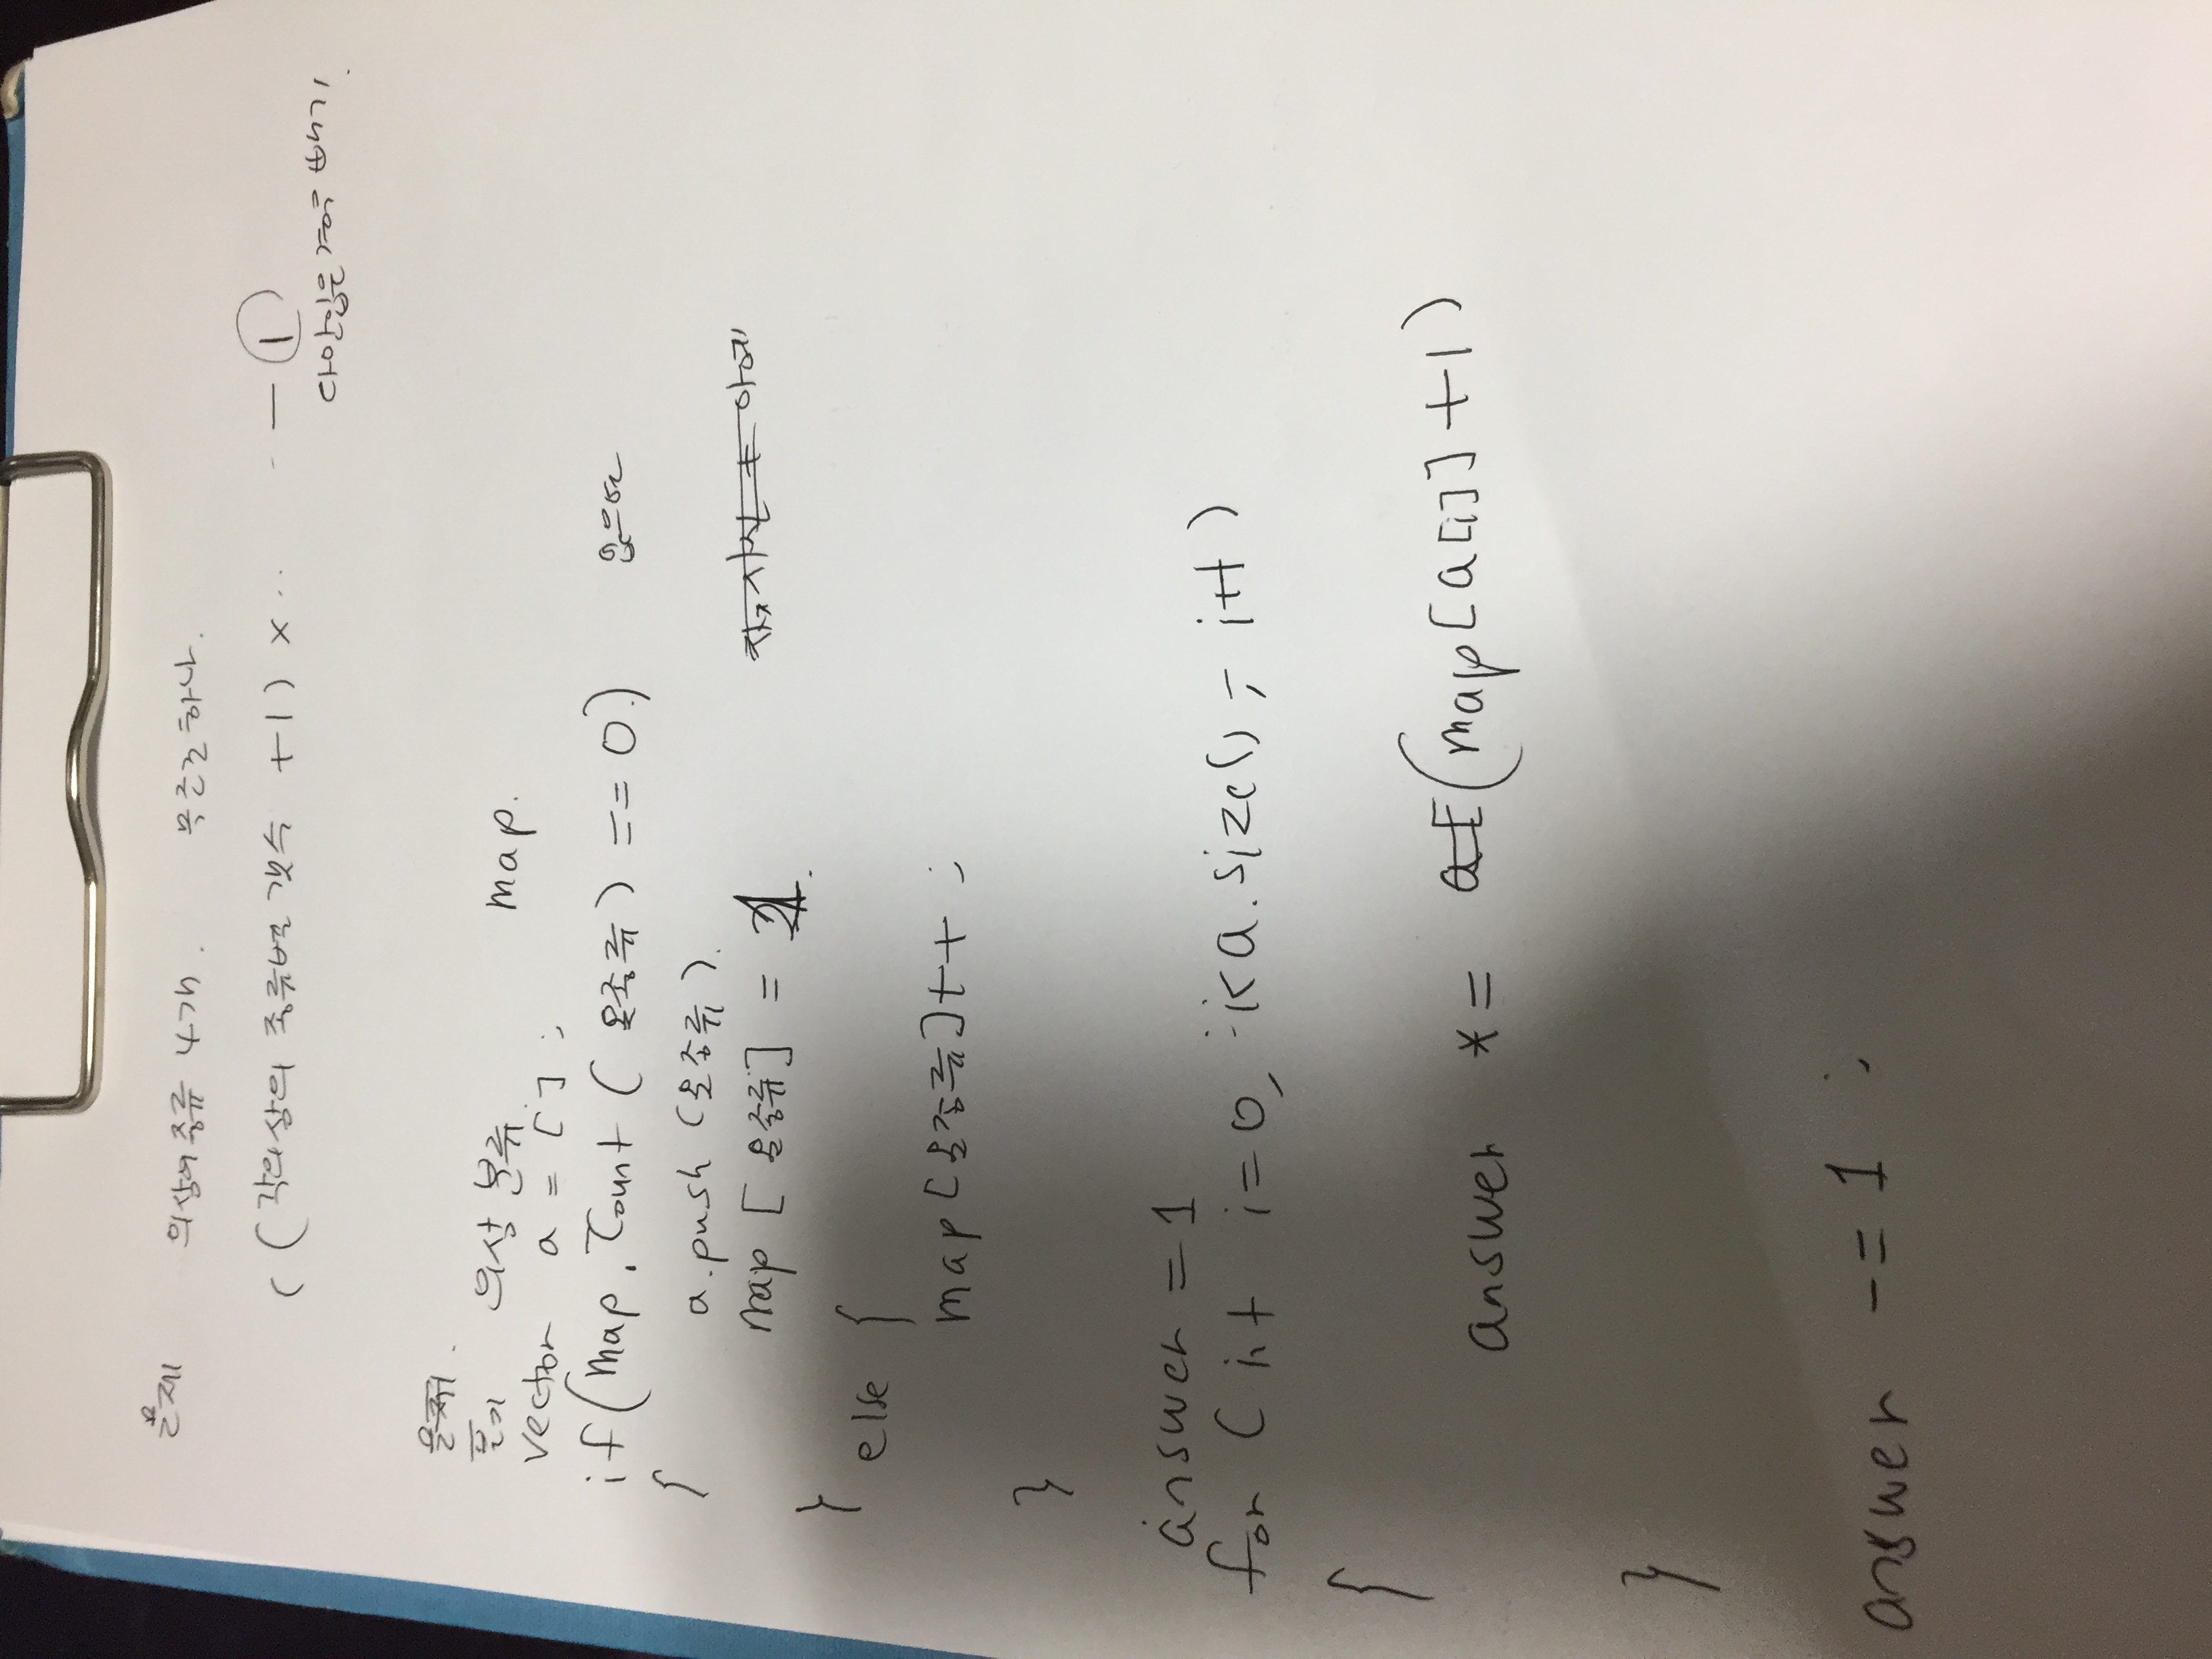 문제 의상의 종류 4개. 무조건 하나.
( (각 의상의 종류별 갯수 +1) × ·· - ①
다 안입은 경우 빼기.
문제.
풀기 의상 분류. map.
vector a = [] ;
if(map.count(옷종류) == 0.) 없으면
{
a.push (옷종류).
map [옷종류] = 1.
아예
} else {
map[옷종류]++ ;
}
answer = 1
for ( int i=0, i<a.size(); i++ )
{
answer *= (map[a[i]]+1)
}
answer -= 1 ;